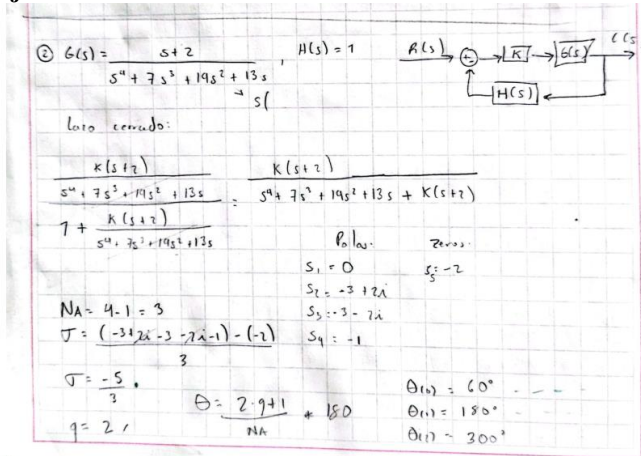 ② G(s) = s+2 / s⁴ + 7s³ + 19s² + 13s , H(s) = 1
R(s) K G(s) C(s
→ s(
H(s)
lazo cerrado:
K(s+2) / s⁴ + 7s³ + 19s² + 13s / 1 + K(s+2) / s⁴ + 7s³ + 19s² + 13s = K(s+2) / s⁴ + 7s³ + 19s² + 13s + K(s+2)
Polos. Zeros.
S₁ = 0 S₅ = -2
S₂ = -3 + 2i
S₃ = -3 - 2i
S₄ = -1
NA = 4-1 = 3
σ = (-3+2i-3-2i-1) - (-2) / 3
σ = -5/3.
q = 2,
θ = 2·q+1 / NA * 180
θ(0) = 60°
θ(1) = 180°
θ(2) = 300°